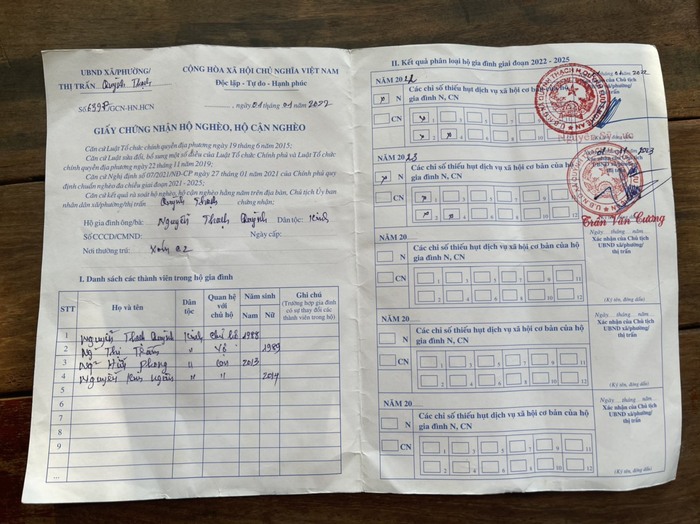 UBND XÃ/PHƯỜNG/
THỊ TRẤN Quỳnh Thạch
Số: 699P/GCN-HN.HCN
CỘNG HÒA XÃ HỘI CHỦ NGHĨA VIỆT NAM
Độc lập - Tự do - Hạnh phúc
, ngày 01 tháng 01 năm 2022
GIẤY CHỨNG NHẬN HỘ NGHÈO, HỘ CẬN NGHÈO
Căn cứ Luật Tổ chức chính quyền địa phương ngày 19 tháng 6 năm 2015;
Căn cứ Luật sửa đổi, bổ sung một số điều của Luật Tổ chức Chính phủ và Luật Tổ chức
chính quyền địa phương ngày 22 tháng 11 năm 2019;
Căn cứ Nghị định số 07/2021/NĐ-CP ngày 27 tháng 01 năm 2021 của Chính phủ quy
định chuẩn nghèo đa chiều giai đoạn 2021 - 2025;
Căn cứ kết quả rà soát hộ nghèo, hộ cận nghèo hằng năm trên địa bàn, Chủ tịch Ủy ban
nhân dân xã/phường/thị trấn Quỳnh Thạch chứng nhận:
Hộ gia đình ông/bà: Nguyễn Thạch Quỳnh Dân tộc: Kinh
Số CCCD/CMND: Ngày cấp:
Nơi thường trú: Xóm 02
I. Danh sách các thành viên trong hộ gia đình
STT Họ và tên Dân tộc Quan hệ với chủ hộ Năm sinh Nam Nữ Ghi chú
(Trường hợp gia đình có sự thay đổi các thành viên trong hộ)
1 Nguyễn Thạch Quỳnh Kinh Chủ hộ 1988
2 Ng~ Thị Thắm " Vợ 1989
3 Ng~ Huy Phong " Con 2013
4 Nguyễn Kim Ngân " "
5
6
7
8
9
...
II. Kết quả phân loại hộ gia đình giai đoạn 2022 - 2025
NĂM 2022
x N
CN
Các chỉ số thiếu hụt dịch vụ xã hội cơ bản của hộ
gia đình N, CN
NĂM 2023
x N
CN
Các chỉ số thiếu hụt dịch vụ xã hội cơ bản của hộ
gia đình N, CN
Trần Văn Cương
NĂM 20
N
CN
Các chỉ số thiếu hụt dịch vụ xã hội cơ bản của hộ
gia đình N, CN
1 3 5 7 9 11
2 4 6 8 10 12
Ngày... tháng... năm...
Xác nhận của Chủ tịch
UBND xã/phường/
thị trấn
(Ký tên, đóng dấu)
NĂM 20
N
CN
Các chỉ số thiếu hụt dịch vụ xã hội cơ bản của hộ
gia đình N, CN
1 3 5 7 9 11
2 4 6 8 10 12
Ngày... tháng... năm...
Xác nhận của Chủ tịch
UBND xã/phường/
thị trấn
(Ký tên, đóng dấu)
NĂM 20
N
CN
Các chỉ số thiếu hụt dịch vụ xã hội cơ bản của hộ
gia đình N, CN
1 3 5 7 9 11
2 4 6 8 10 12
Ngày... tháng... năm...
Xác nhận của Chủ tịch
UBND xã/phường/
thị trấn
(Ký tên, đóng dấu)